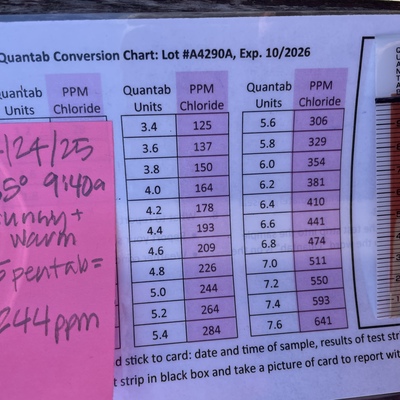 Quantab Conversion Chart: Lot #A4290A, Exp. 10/2026
Quantab Units PPM Chloride
Quantab Units PPM Chloride
Quantab Units PPM Chloride
3.4 125 5.6 306
3.6 137 5.8 329
3.8 150 6.0 354
4.0 164 6.2 381
4.2 178 6.4 410
4.4 193 6.6 441
4.6 209 6.8 474
4.8 226 7.0 511
5.0 244 7.2 550
5.2 264 7.4 593
5.4 284 7.6 641
/24/25
5° 9:40a
sunny +
warm
5 pentab=
244ppm
d stick to card: date and time of sample, results of test str
t strip in black box and take a picture of card to report wit
QUANTA